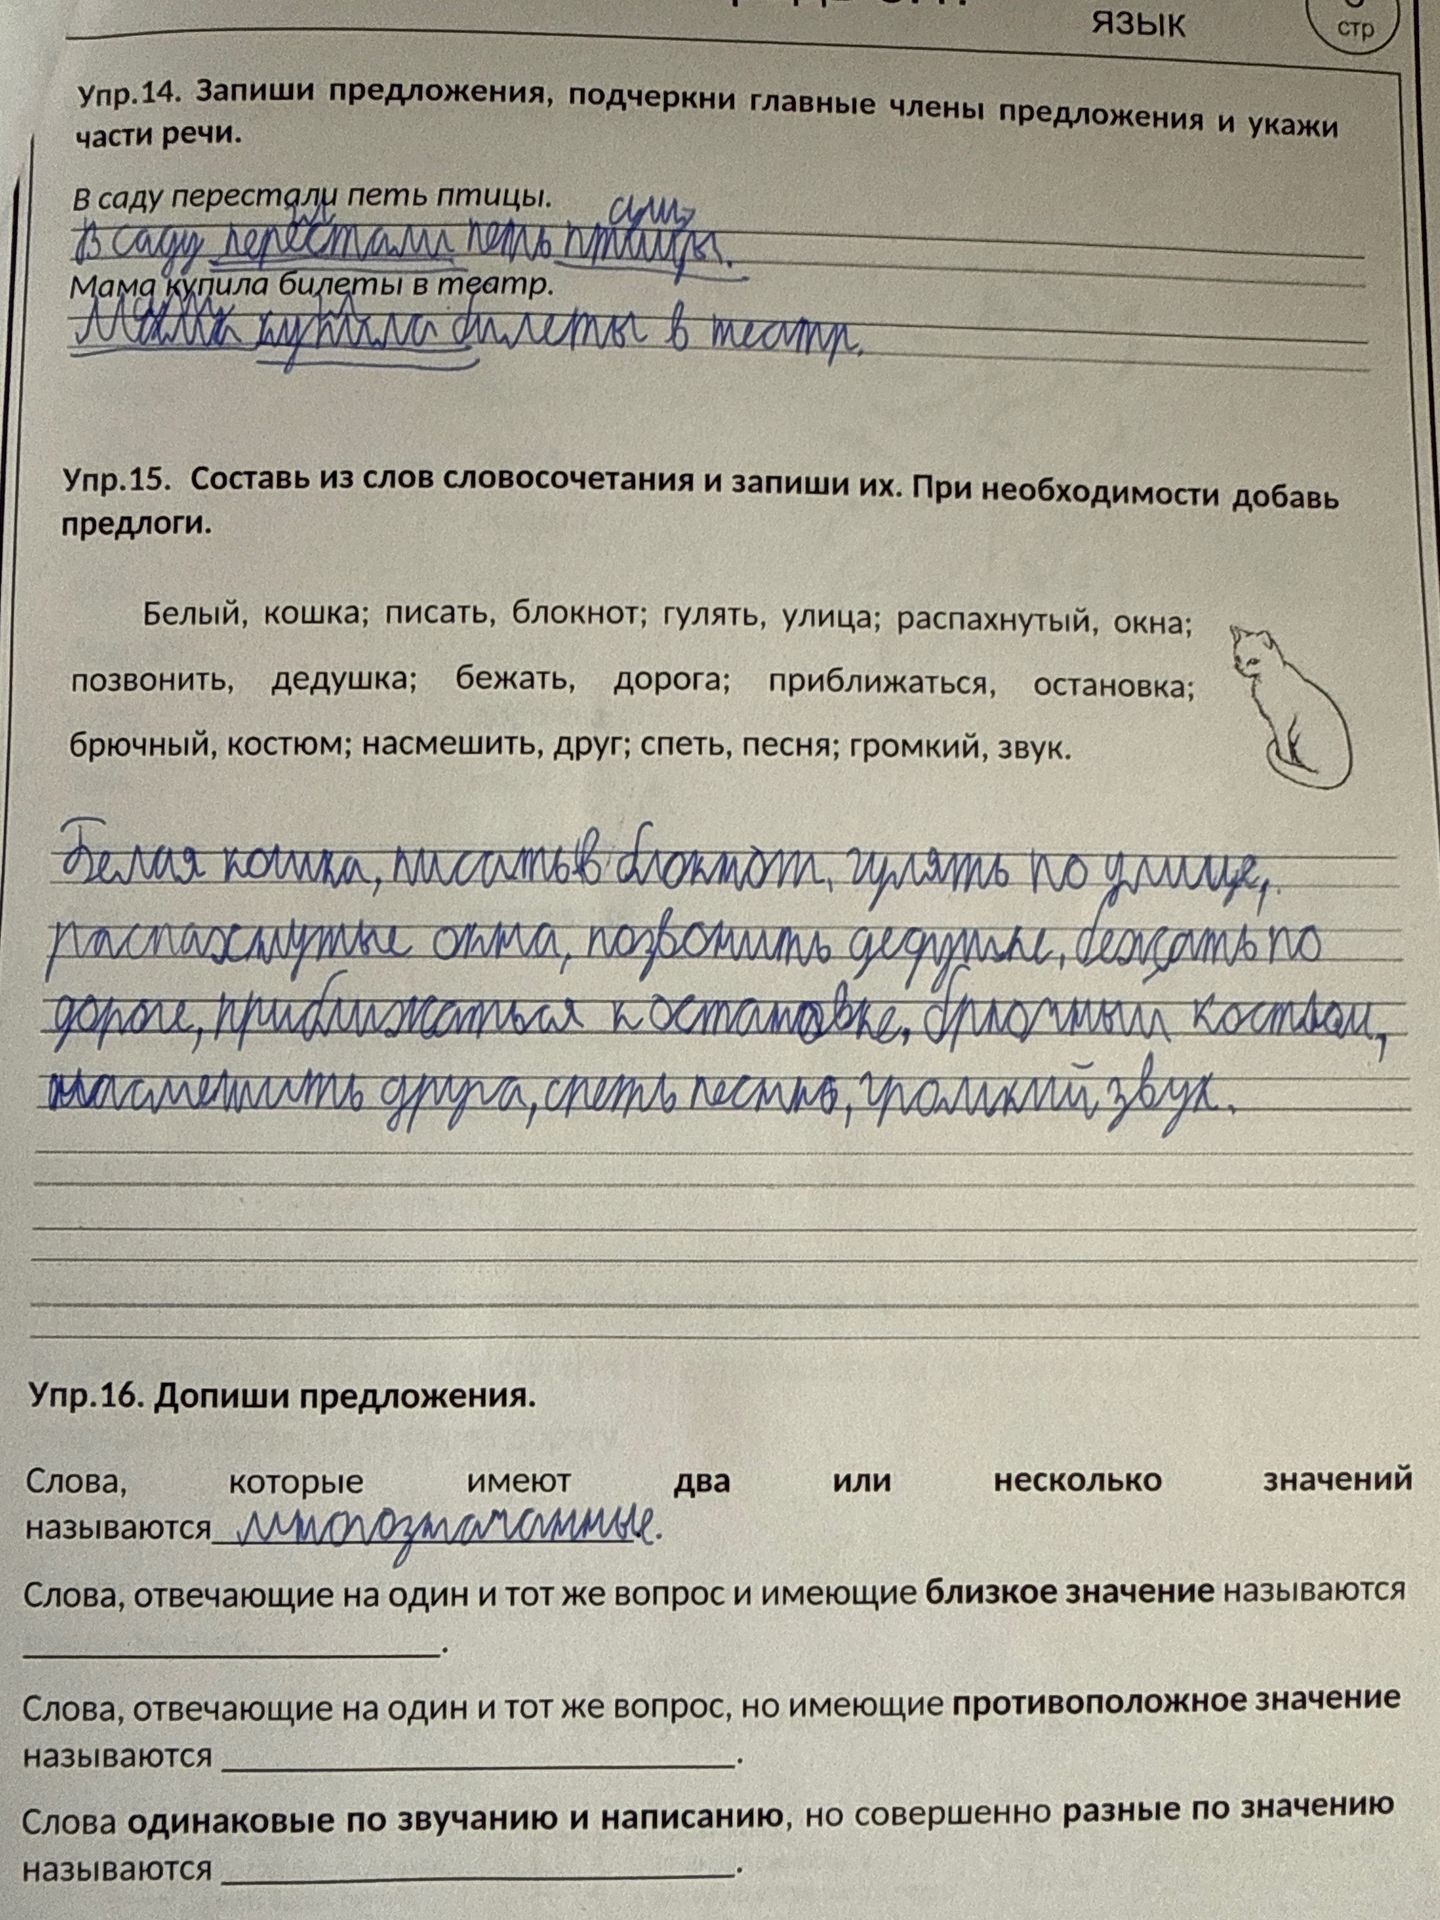 ЯЗЫК
стр
Упр.14. Запиши предложения, подчеркни главные члены предложения и укажи
части речи.
В саду перестали петь птицы.
сущ
В саду перестали петь птицы.
Мама купила билеты в театр.
Мама купила билеты в театр.
Упр.15. Составь из слов словосочетания и запиши их. При необходимости добавь
предлоги.
Белый, кошка; писать, блокнот; гулять, улица; распахнутый, окна;
позвонить, дедушка; бежать, дорога; приближаться, остановка;
брючный, костюм; насмешить, друг; спеть, песня; громкий, звук.
Белая кошка, писать в блокнот, гулять по улице,
распахнутые окна, позвонить дедушке, бежать по
дороге, приближаться к остановке, брючный костюм,
насмешить друга, спеть песню, громкий звук.
Упр.16. Допиши предложения.
Слова, которые имеют два или несколько значений
называются многозначанные.
Слова, отвечающие на один и тот же вопрос и имеющие близкое значение называются
.
Слова, отвечающие на один и тот же вопрос, но имеющие противоположное значение
называются .
Слова одинаковые по звучанию и написанию, но совершенно разные по значению
называются .